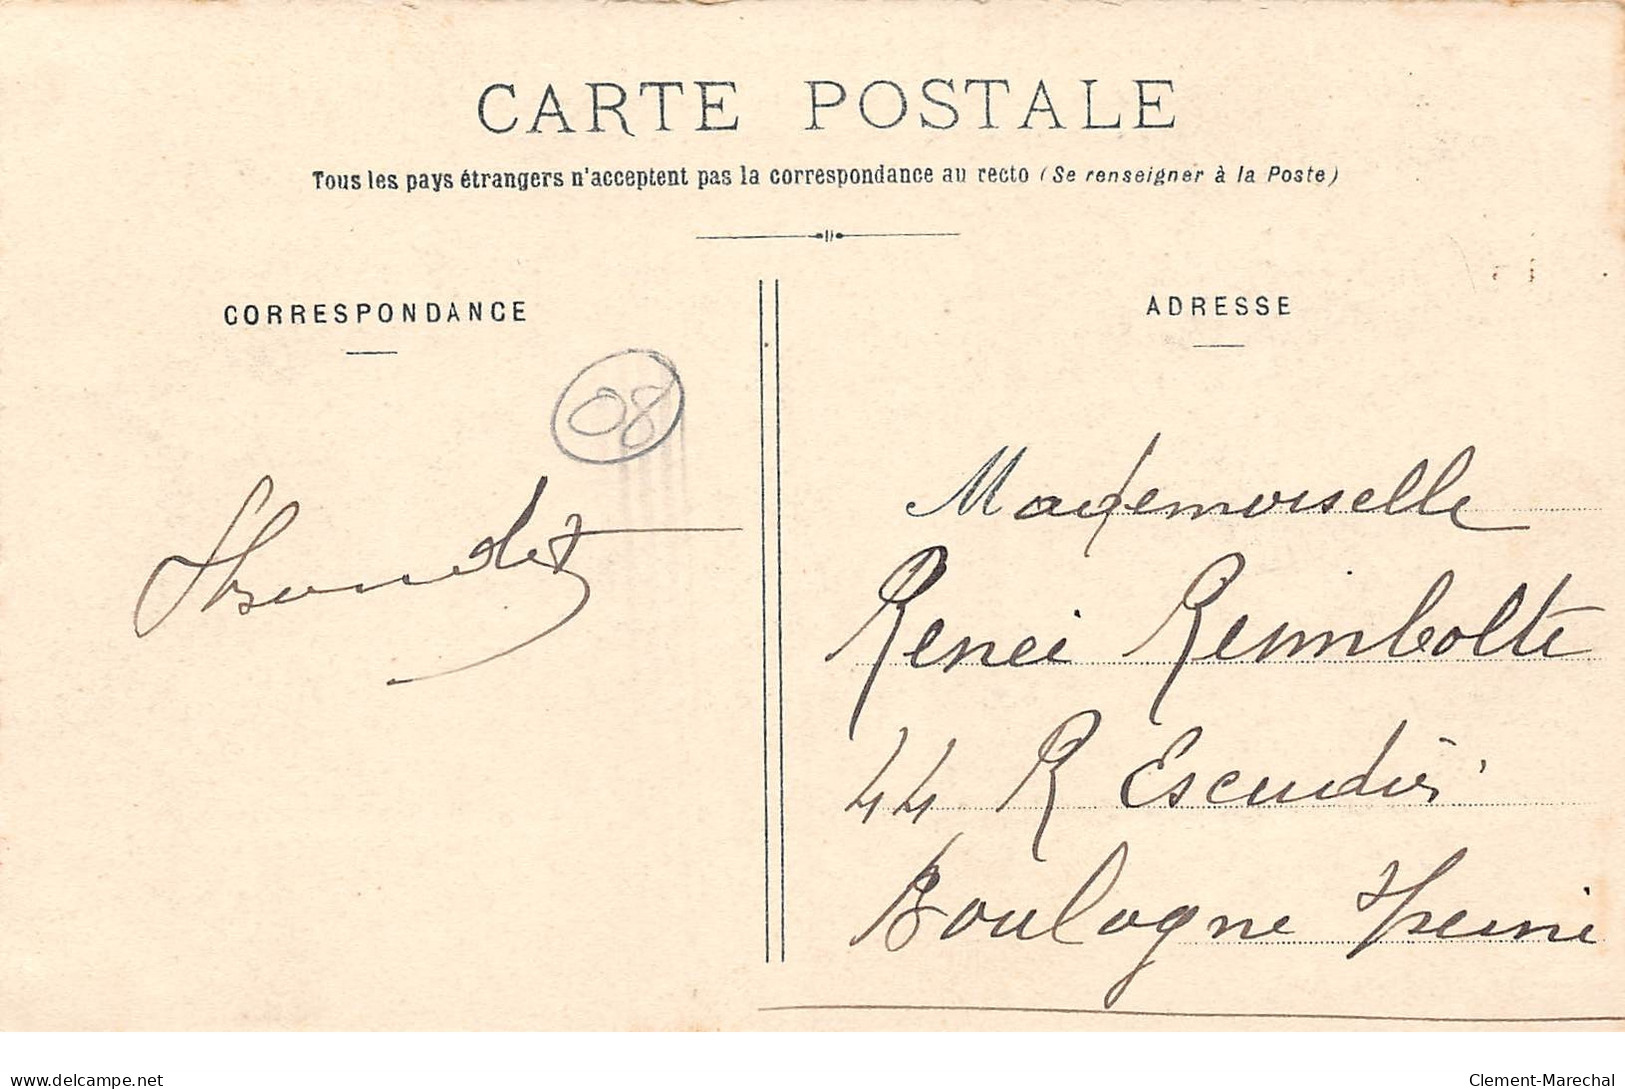 CARTE POSTALE
Tous les pays étrangers n'acceptent pas la correspondance au recto (Se renseigner à la Poste)
CORRESPONDANCE
ADRESSE
08
Mademoiselle
Renée
44 R Escudier
Boulogne s/Seine
delcampe.net
Clement-Marechal